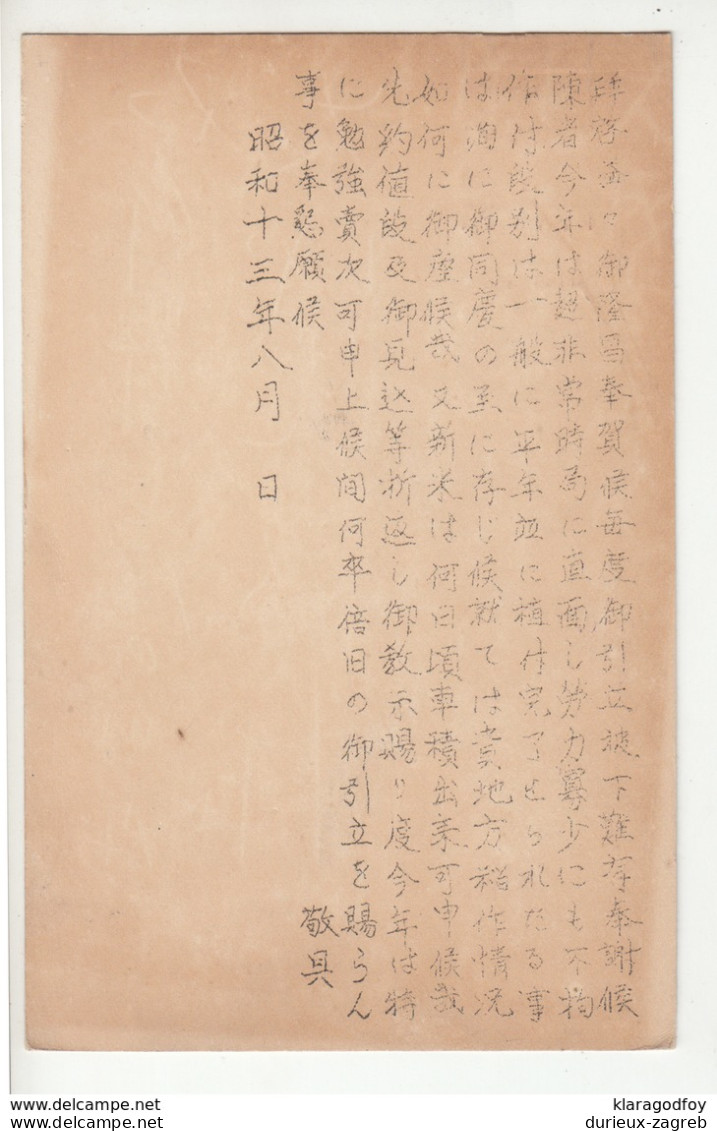 拝啓益々御隆昌奉賀候毎度御引立被下難有奉謝候
陳者今年は超非常時局に直面し労力寡少にも不拘
作付段別は一般に平年並に植付完了せられたる事
は洵に御同慶の至に存じ候就ては貴地方稲作情況
如何に御座候哉又新米は何日頃車積出来可申候哉
先約値段及御見込等折返し御教示賜り度今年は特
に勉強買次可申上候間何卒倍旧の御引立を賜らん
事を奉懇願候
敬具
昭和十三年八月 日
klaragodfoy
delcampe.net
durieux-zagreb